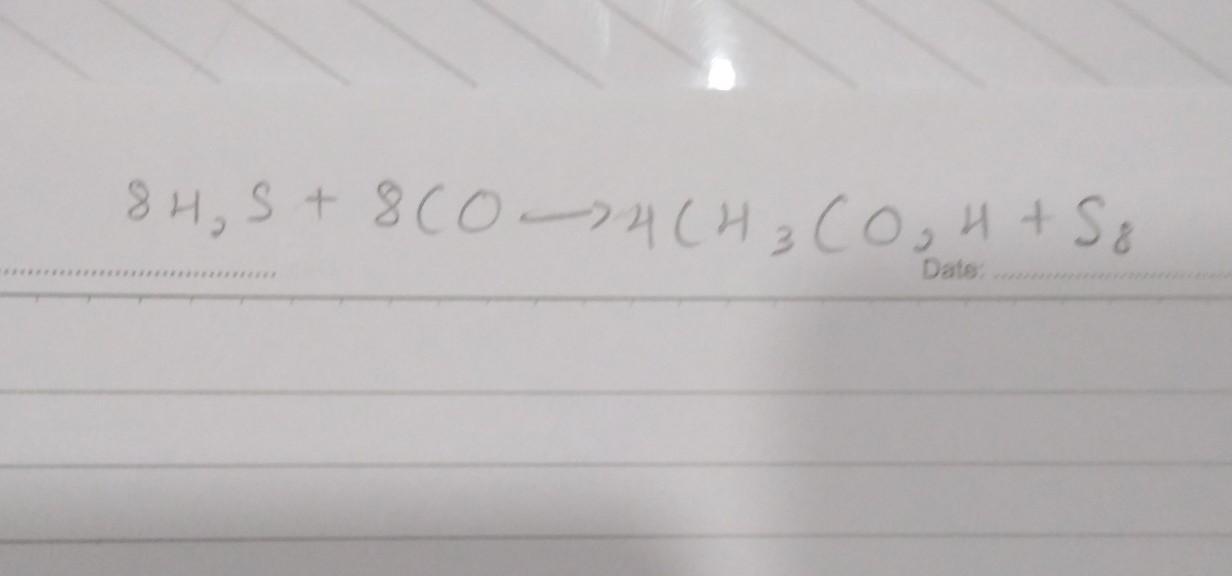 8H₂S + 8CO → 4CH₃CO₂H + S₈
Date: